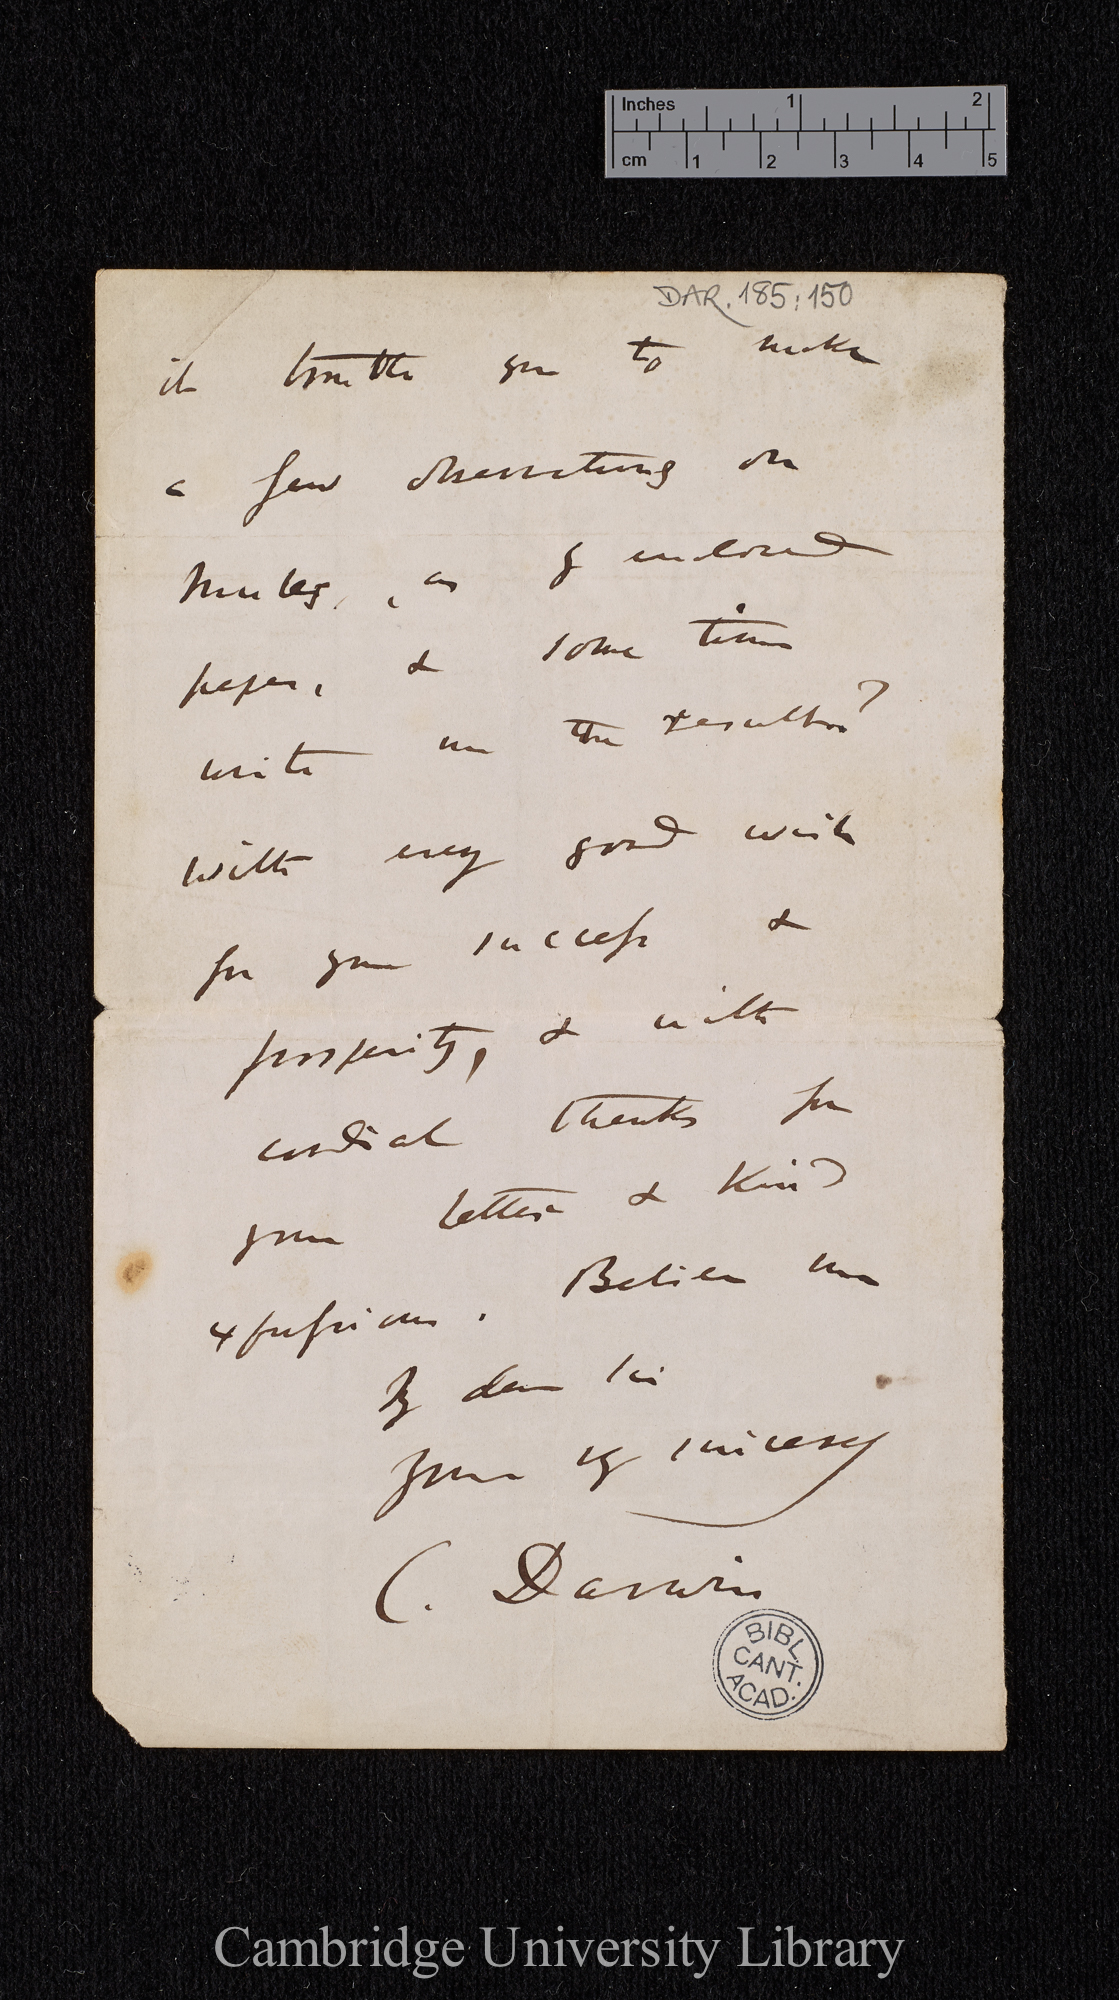 Inches 1 2
cm 1 2 3 4 5
DAR. 185:150
it trouble you to make
a few observations on
Mules, as of enclosed
paper, & some time
write me the results?
With every good wish
for your success &
prosperity, & with
cordial thanks for
your letter & kind
expressions. Believe me
My dear Sir
Yours vy sincerely
C. Darwin
BIBL.
CANT.
ACAD.
Cambridge University Library